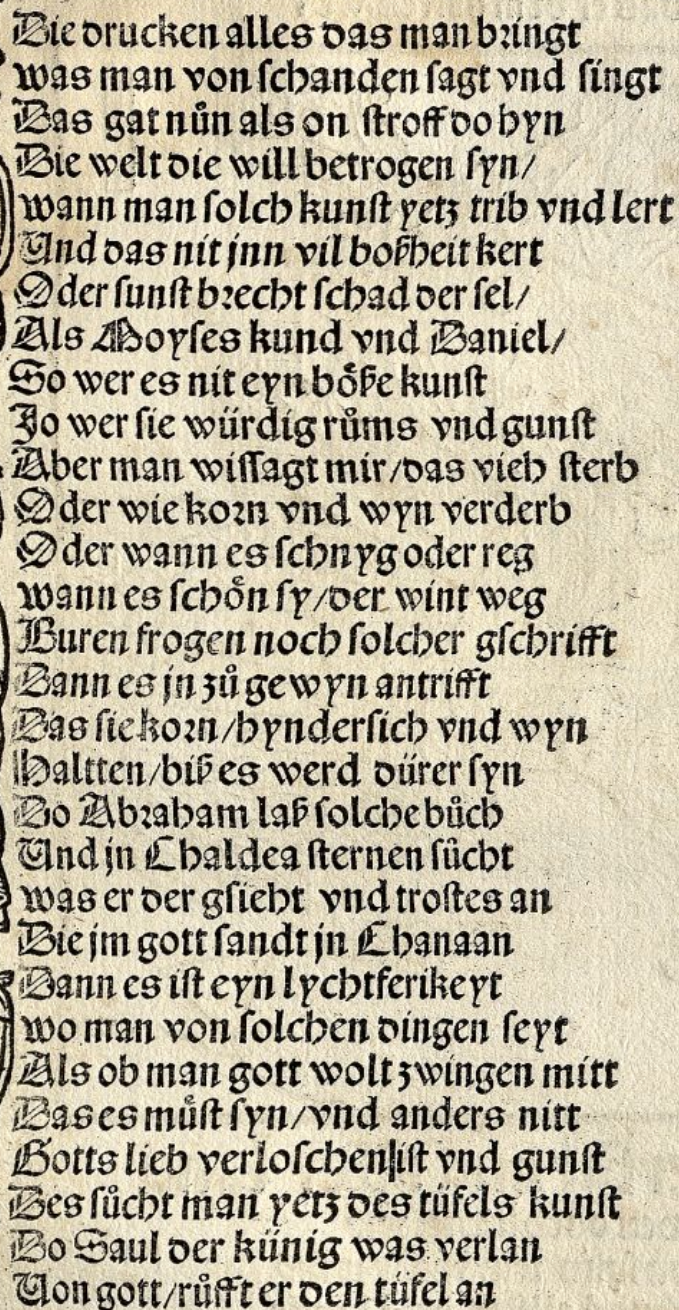 Die drucken alles das man bringt
was man von schanden sagt vnd singt
Das gat nůn als on stroff do hyn
Die welt die will betrogen syn/
wann man solch kunst yetz trib vnd lert
Vnd das nit jnn vil boßheit kert
Oder sunst brecht schad der sel/
Als Moyses kund vnd Daniel/
So wer es nit eyn böße kunst
Jo wer sie würdig růms vnd gunst
Aber man wissagt mir/das vieh sterb
Oder wie korn vnd wyn verderb
Oder wann es schnyg oder reg
wann es schön sy/der wint weg
Buren frogen noch solcher gschrifft
Dann es jn zů gewyn antrifft
Das sie korn/hyndersich vnd wyn
Haltten/biß es werd dürer syn
Do Abraham laß solche bůch
Vnd jn Chaldea sternen sůcht
was er der gsicht vnd trostes an
Die jm gott sandt jn Chanaan
Dann es ist eyn lychtferikeyt
wo man von solchen dingen seyt
Als ob man gott wolt zwingen mitt
Das es můst syn/vnd anders nitt
Gotts lieb verloschen|ist vnd gunst
Des sůcht man yetz des tüfels kunst
Do Saul der künig was verlan
Von gott/růfft er den tüfel an